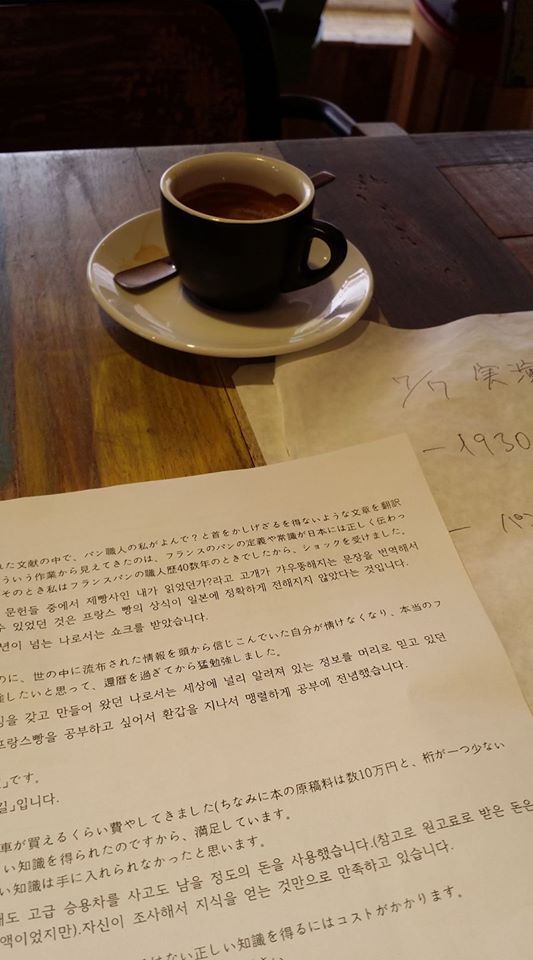 7/7 実演
— 1930
— パン
れた文献の中で、パン職人の私がよんで？と首をかしげざるを得ないような文章を翻訳
ういう作業から見えてきたのは、フランスのパンの定義や常識が日本には正しく伝わっ
そのとき私はフランスパンの職人歴40数年のときでしたから、ショックを受けました。
문헌들 중에서 제빵사인 내가 읽었던가?라고 고개가 갸우뚱해지는 문장을 번역해서
수 있었던 것은 프랑스 빵의 상식이 일본에 정확하게 전해지지 않았다는 것입니다.
년이 넘는 나로서는 쇼크를 받았습니다.
のに、世の中に流布された情報を頭から信じこんでいた自分が情けなくなり、本当のフ
強したいと思って、還暦を過ぎてから猛勉強しました。
을 갖고 만들어 왔던 나로서는 세상에 널리 알려져 있는 정보를 머리로 믿고 있던
프랑스빵을 공부하고 싶어서 환갑을 지나서 맹렬하게 공부에 전념했습니다.
」です。
일」입니다.
車が買えるくらい費やしてきました(ちなみに本の原稿料は数10万円と、桁が一つ少ない
い知識を得られたのですから、満足しています。
い知識は手に入れられなかったと思います。
도 고급 승용차를 사고도 남을 정도의 돈을 사용했습니다.(참고로 원고료로 받은 돈은
액이었지만).자신이 조사해서 지식을 얻는 것만으로 만족하고 있습니다.
はない正しい知識を得るにはコストがかかります。